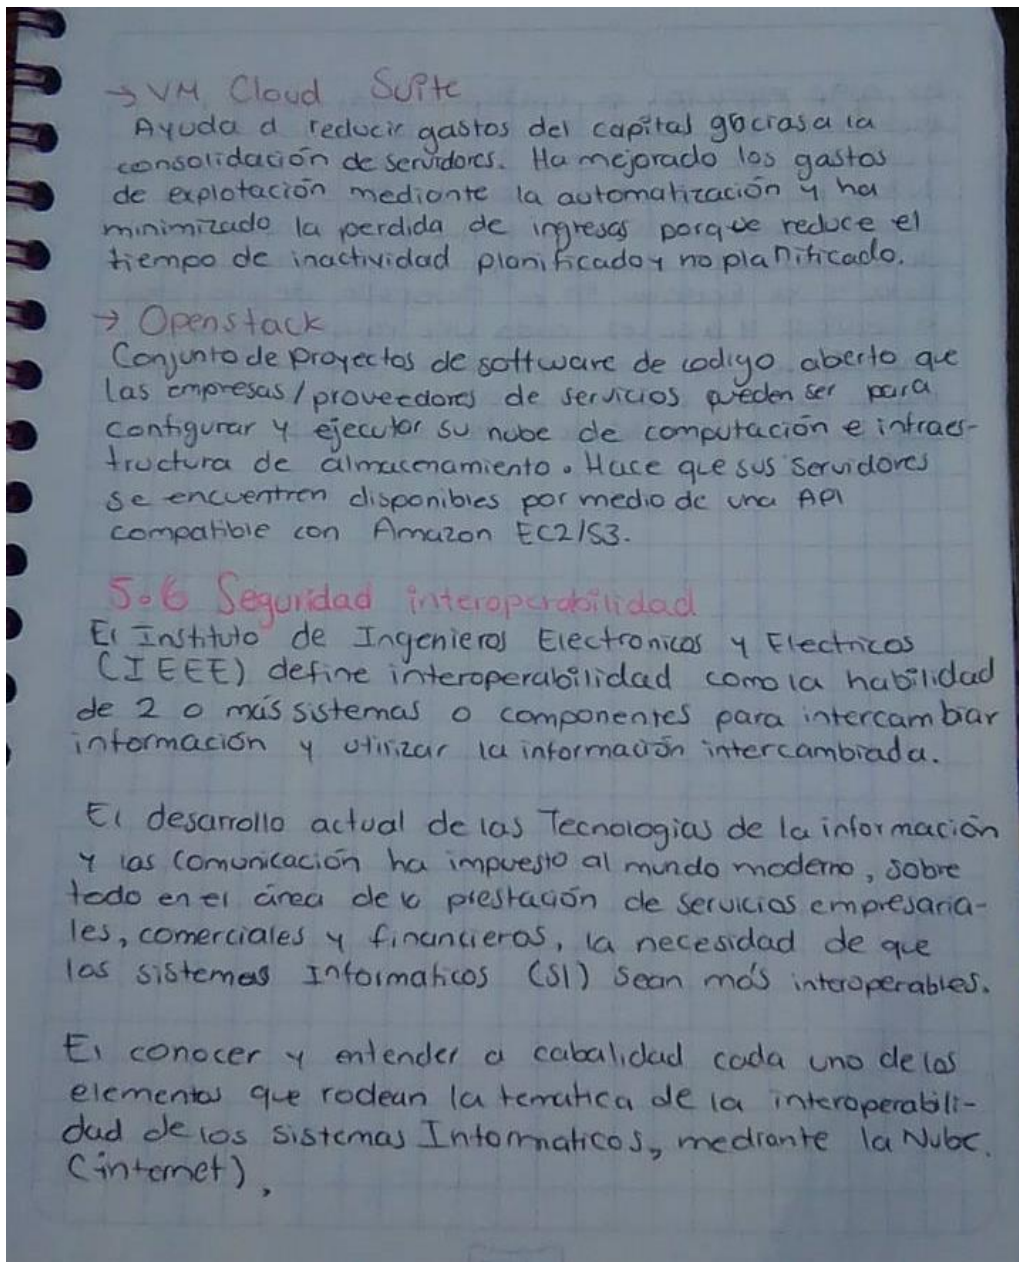 → VM Cloud Suite
Ayuda a reducir gastos del capital gacias a la
consolidación de servidores. Ha mejorado los gastos
de explotación mediante la automatización y ha
minimizado la perdida de ingresos porque reduce el
tiempo de inactividad planificado y no planificado.
→ Openstack
Conjunto de proyectos de software de codigo aberto que
las empresas/proveedores de servicios pueden ser para
configurar y ejecutar su nube de computación e infraes-
tructura de almacenamiento. Hace que sus servidores
se encuentren disponibles por medio de una API
compatible con Amazon EC2/S3.
5.6 Seguridad interoperabilidad
El Instituto de Ingenieros Electronicos y Electricos
(IEEE) define interoperabilidad como la habilidad
de 2 o más sistemas o componentes para intercambiar
información y utilizar la información intercambiada.
El desarrollo actual de las Tecnologias de la información
y las comunicación ha impuesto al mundo moderno, sobre
todo en el área de la prestación de servicios empresaria-
les, comerciales y financieros, la necesidad de que
los sistemas Informaticos (SI) sean más interoperables.
El conocer y entender a cabalidad cada uno de los
elementos que rodean la tematica de la interoperabili-
dad de los sistemas Informaticos, mediante la Nube.
(internet),